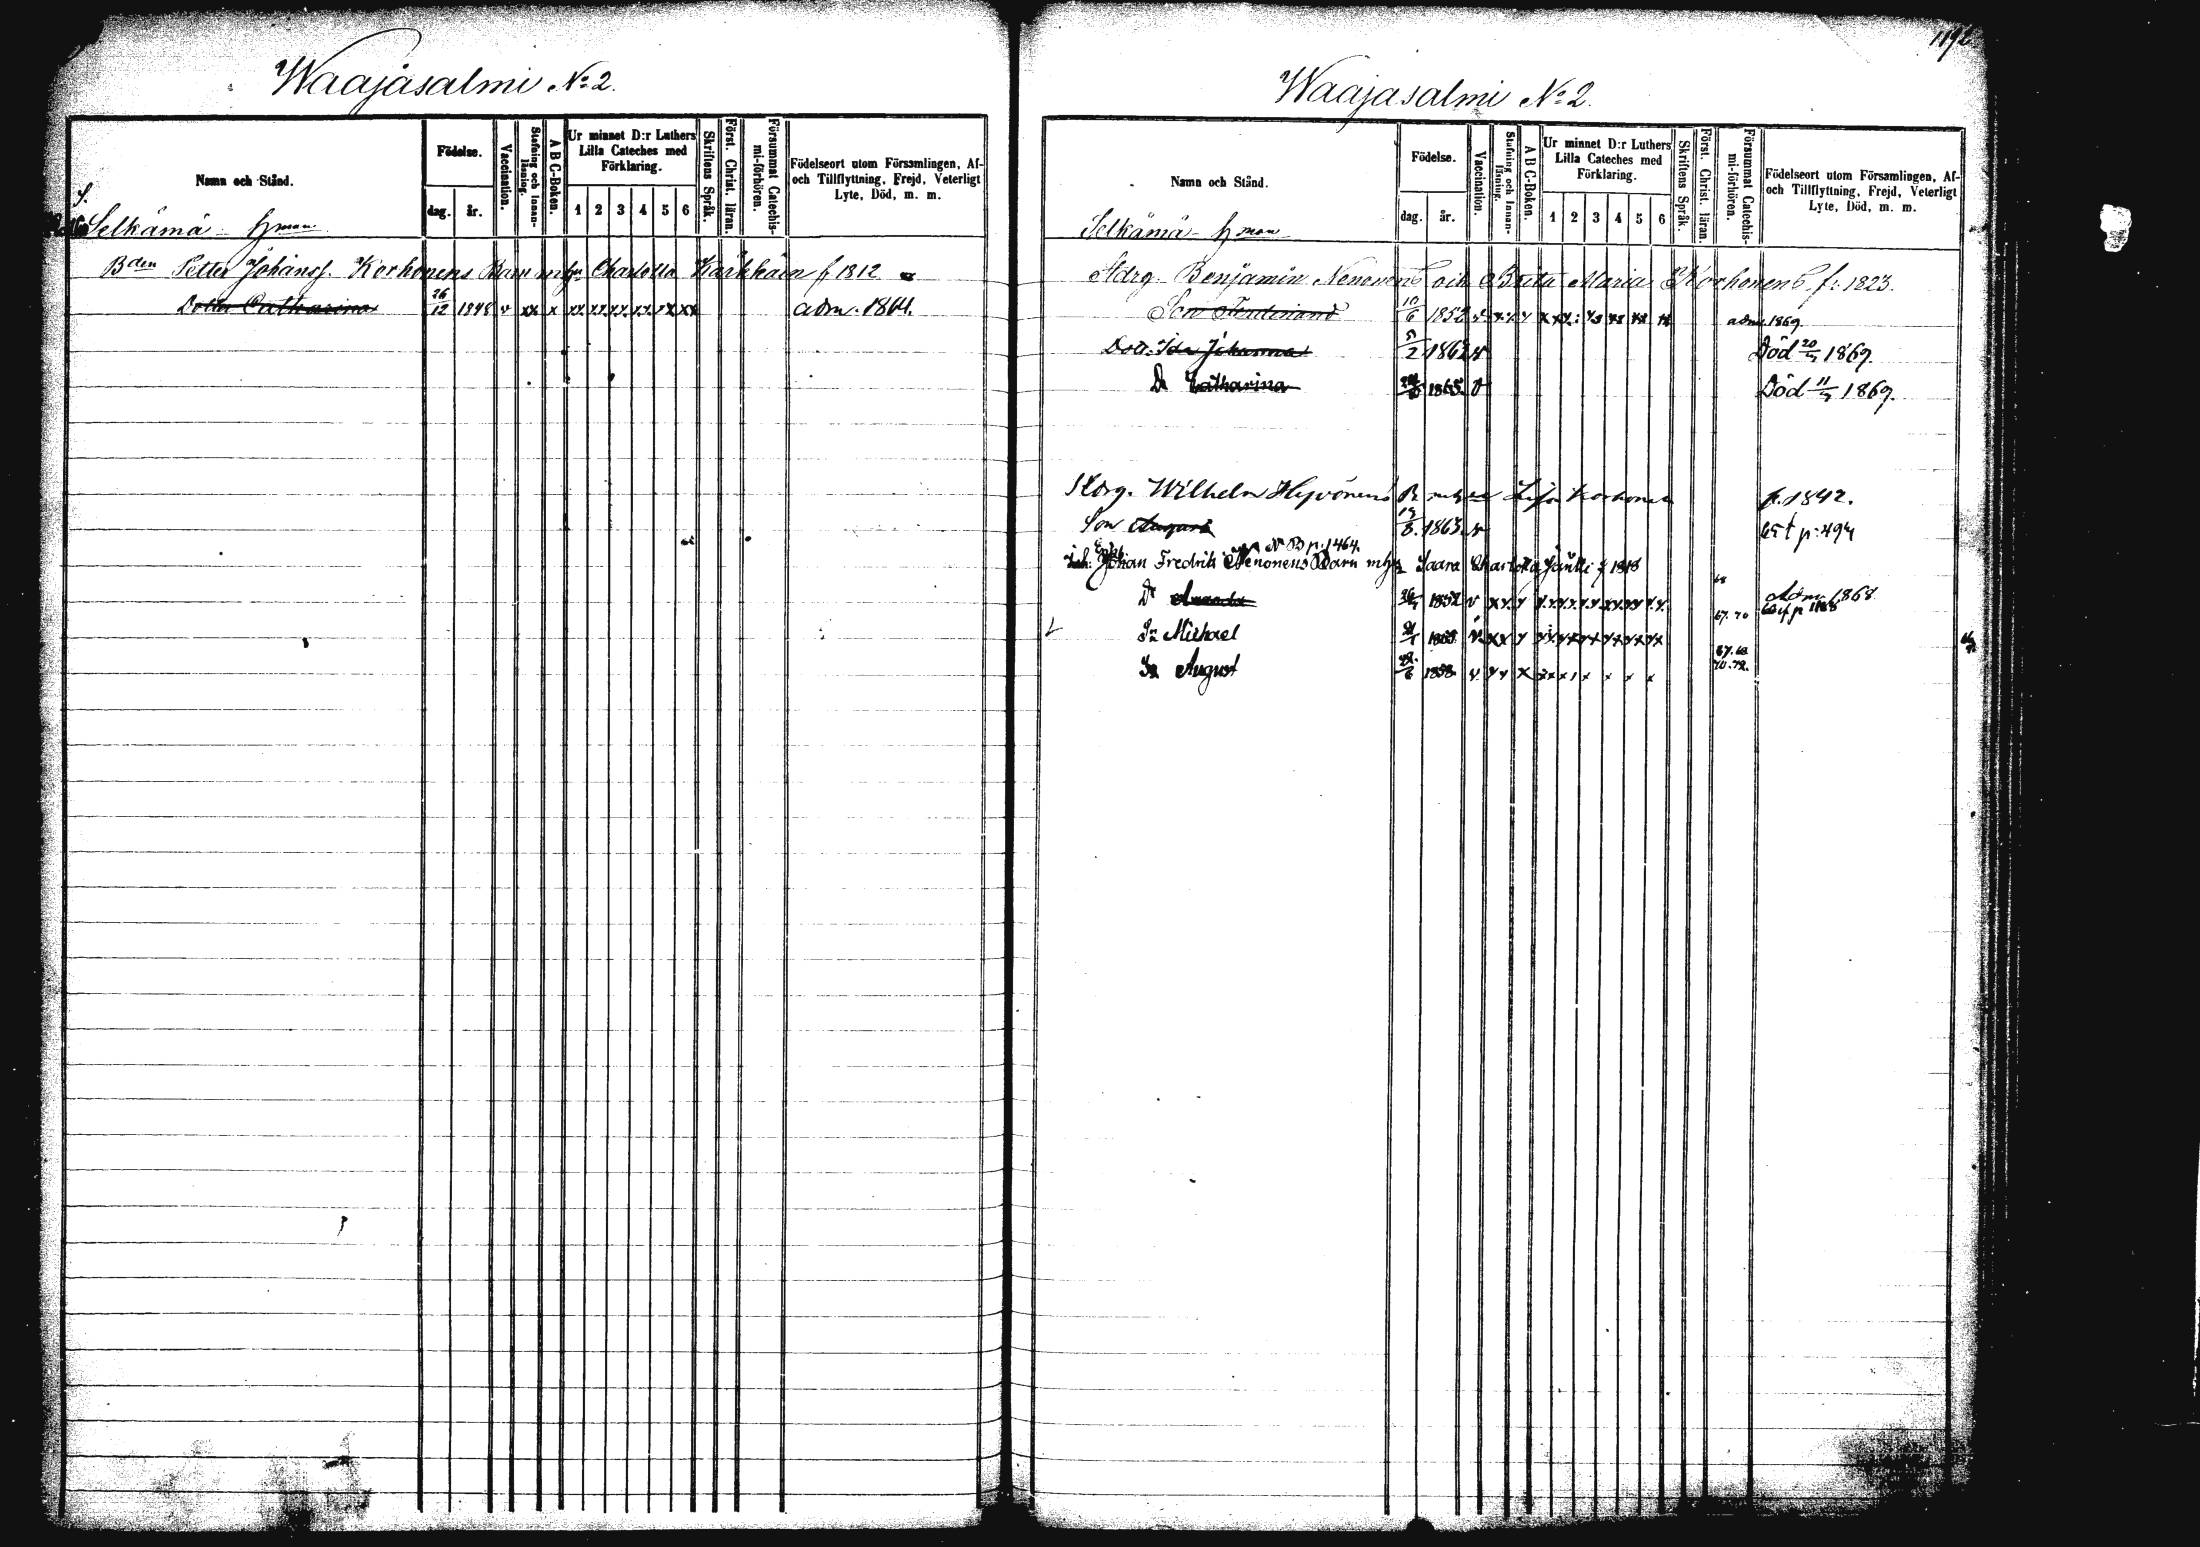 Waajasalmi No 2.
Namn och Stånd.
Födelse.
dag.
år.
Vaccination.
Stafning och Innanläsning.
A B C-Boken.
Ur minnet D:r Luthers Lilla Cateches med Förklaring.
1 2 3 4 5 6
Skriftens Språk.
Först. Christ. läran.
Försummat Catechismi-förhören.
Födelseort utom Församlingen, Af- och Tillflyttning, Frejd, Veterligt Lyte, Död, m. m.
Selkämä Hman
Bden Petter Johanss. Korhonens Barn mhu Charlotta Kärkkäin f 1812
Dotter Catharina 26/12 1848 v xx x adm. 1864.
1196
Waajasalmi No 2.
Namn och Stånd.
Födelse.
dag.
år.
Vaccination.
Stafning och Innanläsning.
A B C-Boken.
Ur minnet D:r Luthers Lilla Cateches med Förklaring.
1 2 3 4 5 6
Skriftens Språk.
Först. Christ. läran.
Försummat Catechismi-förhören.
Födelseort utom Församlingen, Af- och Tillflyttning, Frejd, Veterligt Lyte, Död, m. m.
Selkämä Hman
Benjamin Nenonens och Brita Maria Korhonens f: 1823.
Son Ferdinand 10/6 1852 adm. 1869.
Dotr. Ida Johanna 5/2 Död 20/5 1869.
Dr Catharina 1865. v Död 11/5 1869.
Wilhelm Hyvönens B Korhonen f. 1842.
Son August 8. 1863. v 65 t p: 494
No B p: 1464.
Johan Fredrik Nenonens Barn mhu Saara Charlotta f 1818
68
Dr Amanda 1852 v Adm. 1868
67. 70
Sn Michael
67. 68
Sn August 6 1858 v
70. 72.